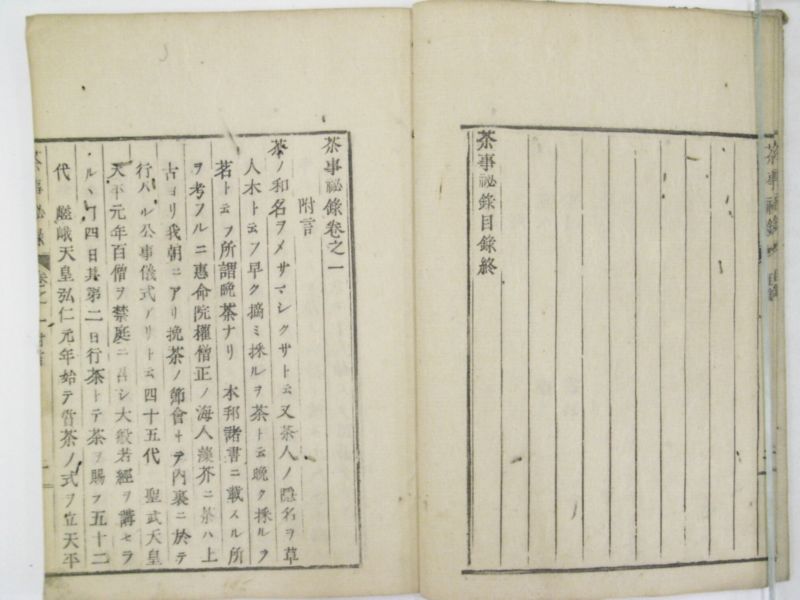 茶事祕錄目錄終
茶事祕錄卷之一
附言
茶ノ和名ヲメサマシクサト云又茶人ノ隠名ヲ草
人木ト云フ早ク摘ミ採ルヲ茶ト云晩ク採ルヲ
茗ト云フ所謂晩茶ナリ 本邦諸書ニ載スル所
ヲ考フルニ惠命院權僧正ノ海人藻芥ニ茶ハ上
古ヨリ我朝ニアリ挽茶ノ節會トテ内裏ニ於テ
行ハル公事儀式アリト云四十五代 聖武天皇
天平元年百僧ヲ禁庭ニ シ大般若經ヲ講セラ
ルヽ 四日其第二日行茶トテ茶ヲ賜フ五十二
代 嵯峨天皇弘仁元年始テ 茶ノ式ヲ立天平
茶事祕錄 卷之一附言